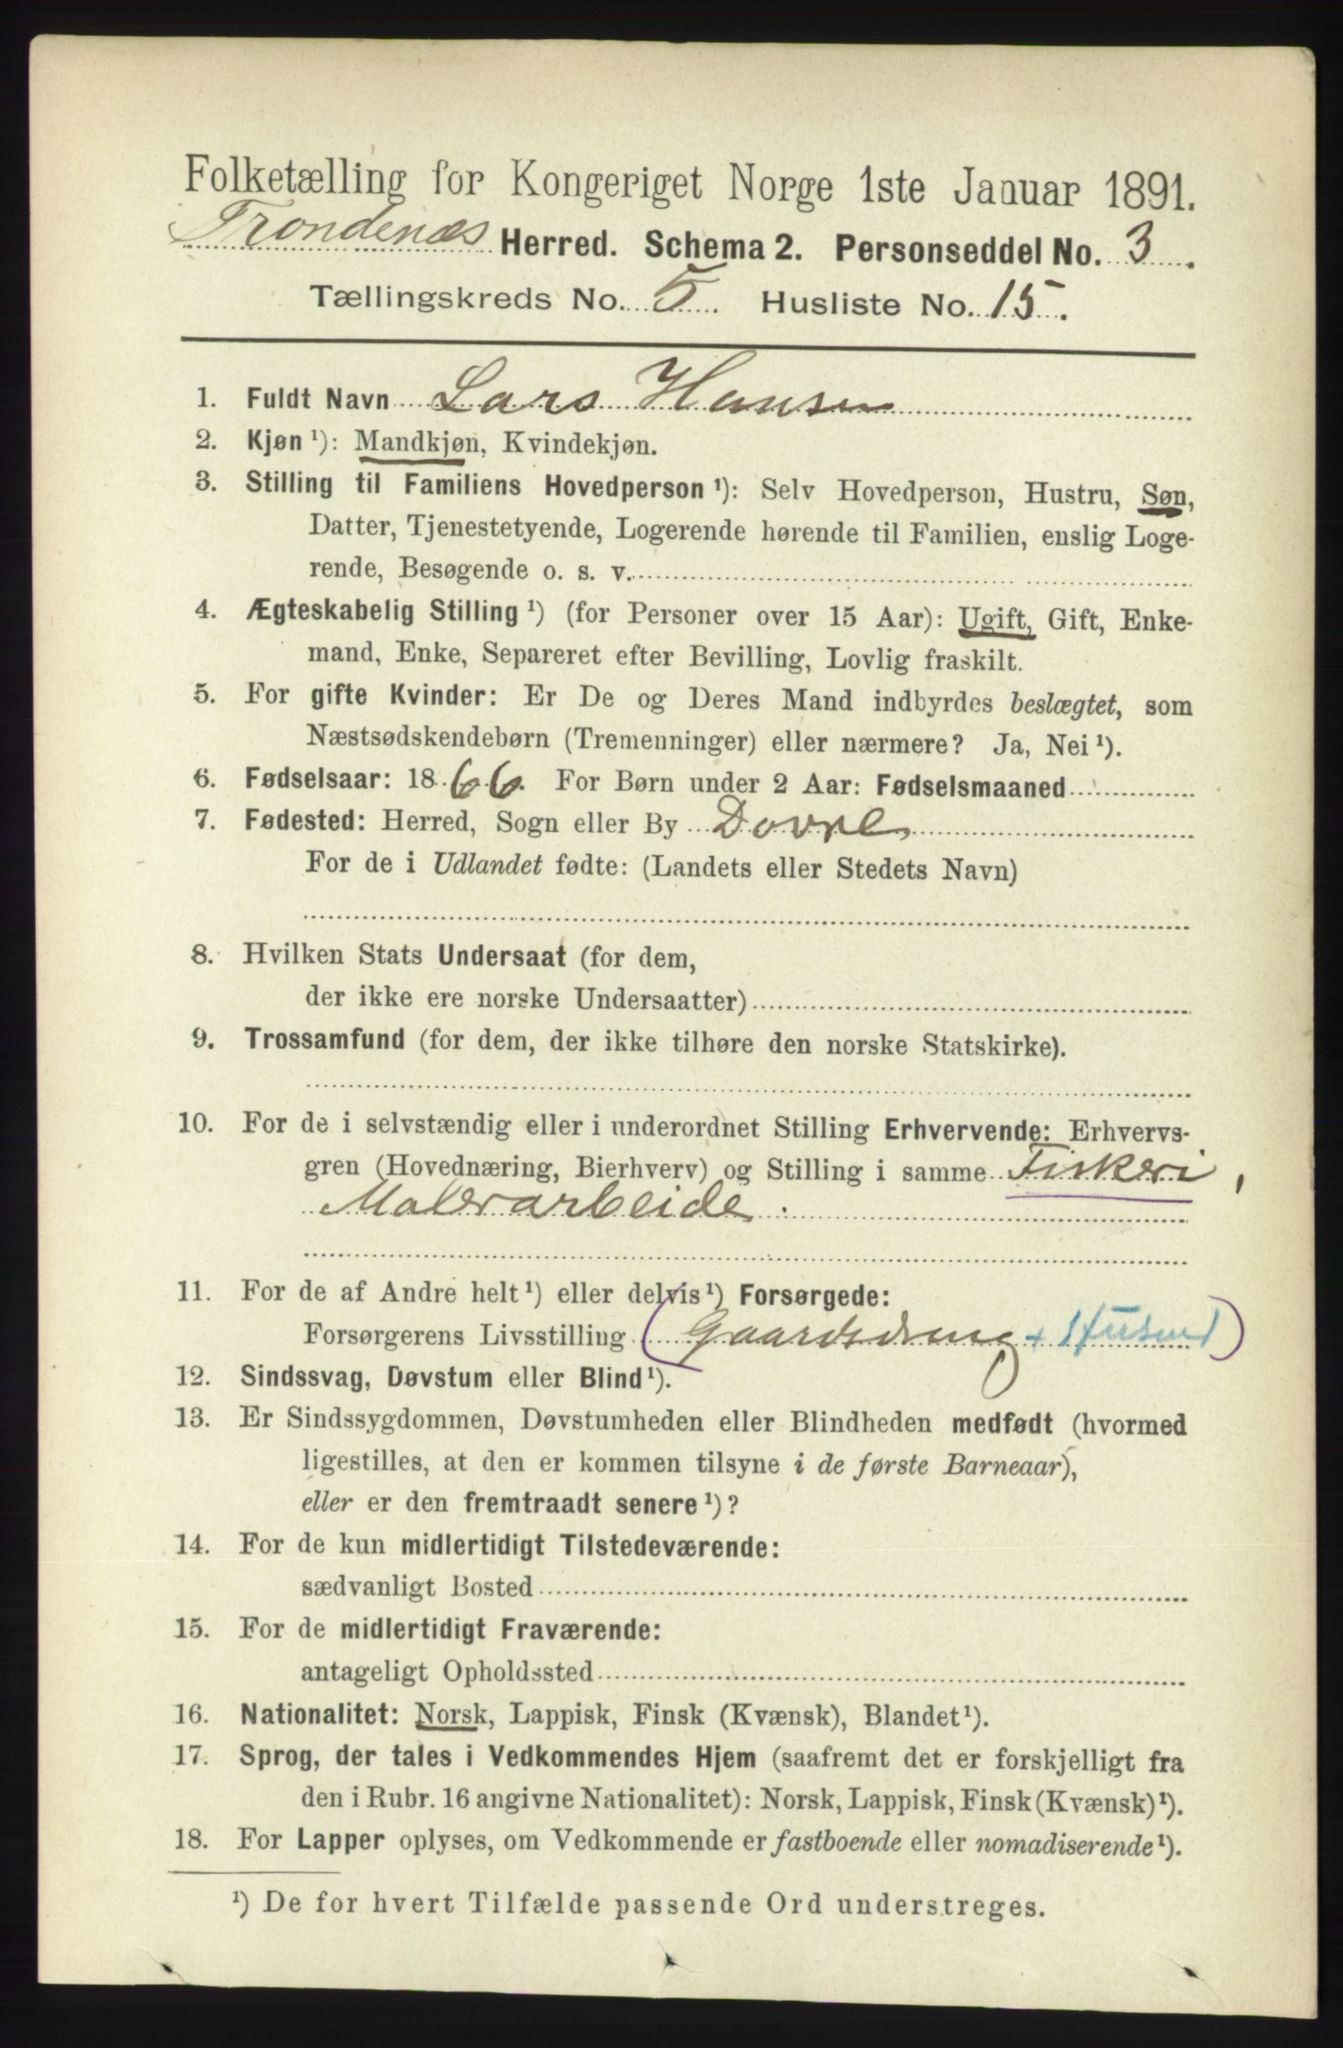 Folketælling for Kongeriget Norge 1ste Januar 1891.
Trondenæs Herred. Schema 2. Personseddel No. 3.
Tællingskreds No. 5. Husliste No. 15.
1. Fuldt Navn Lars Hansen
2. Kjøn ¹): Mandkjøn, Kvindekjøn.
3. Stilling til Familiens Hovedperson ¹): Selv Hovedperson, Hustru, Søn,
Datter, Tjenestetyende, Logerende hørende til Familien, enslig Loge-
rende, Besøgende o. s. v.
4. Ægteskabelig Stilling ¹) (for Personer over 15 Aar): Ugift, Gift, Enke-
mand, Enke, Separeret efter Bevilling, Lovlig fraskilt.
5. For gifte Kvinder: Er De og Deres Mand indbyrdes beslægtet, som
Næstsødskendebørn (Tremenninger) eller nærmere? Ja, Nei ¹).
6. Fødselsaar: 1866. For Børn under 2 Aar: Fødselsmaaned
7. Fødested: Herred, Sogn eller By Dovre
For de i Udlandet fødte: (Landets eller Stedets Navn)
8. Hvilken Stats Undersaat (for dem,
der ikke ere norske Undersaatter)
9. Trossamfund (for dem, der ikke tilhøre den norske Statskirke).
10. For de i selvstændig eller i underordnet Stilling Erhvervende: Erhvervs-
gren (Hovednæring, Bierhverv) og Stilling i samme Fiskeri,
Malerarbeide.
11. For de af Andre helt ¹) eller delvis ¹) Forsørgede:
Forsørgerens Livsstilling (Gaardsdreng + Husmd)
12. Sindssvag, Døvstum eller Blind ¹).
13. Er Sindssygdommen, Døvstumheden eller Blindheden medfødt (hvormed
ligestilles, at den er kommen tilsyne i de første Barneaar),
eller er den fremtraadt senere ¹)?
14. For de kun midlertidigt Tilstedeværende:
sædvanligt Bosted
15. For de midlertidigt Fraværende:
antageligt Opholdssted
16. Nationalitet: Norsk, Lappisk, Finsk (Kvænsk), Blandet ¹).
17. Sprog, der tales i Vedkommendes Hjem (saafremt det er forskjelligt fra
den i Rubr. 16 angivne Nationalitet): Norsk, Lappisk, Finsk (Kvænsk) ¹).
18. For Lapper oplyses, om Vedkommende er fastboende eller nomadiserende ¹).
¹) De for hvert Tilfælde passende Ord understreges.